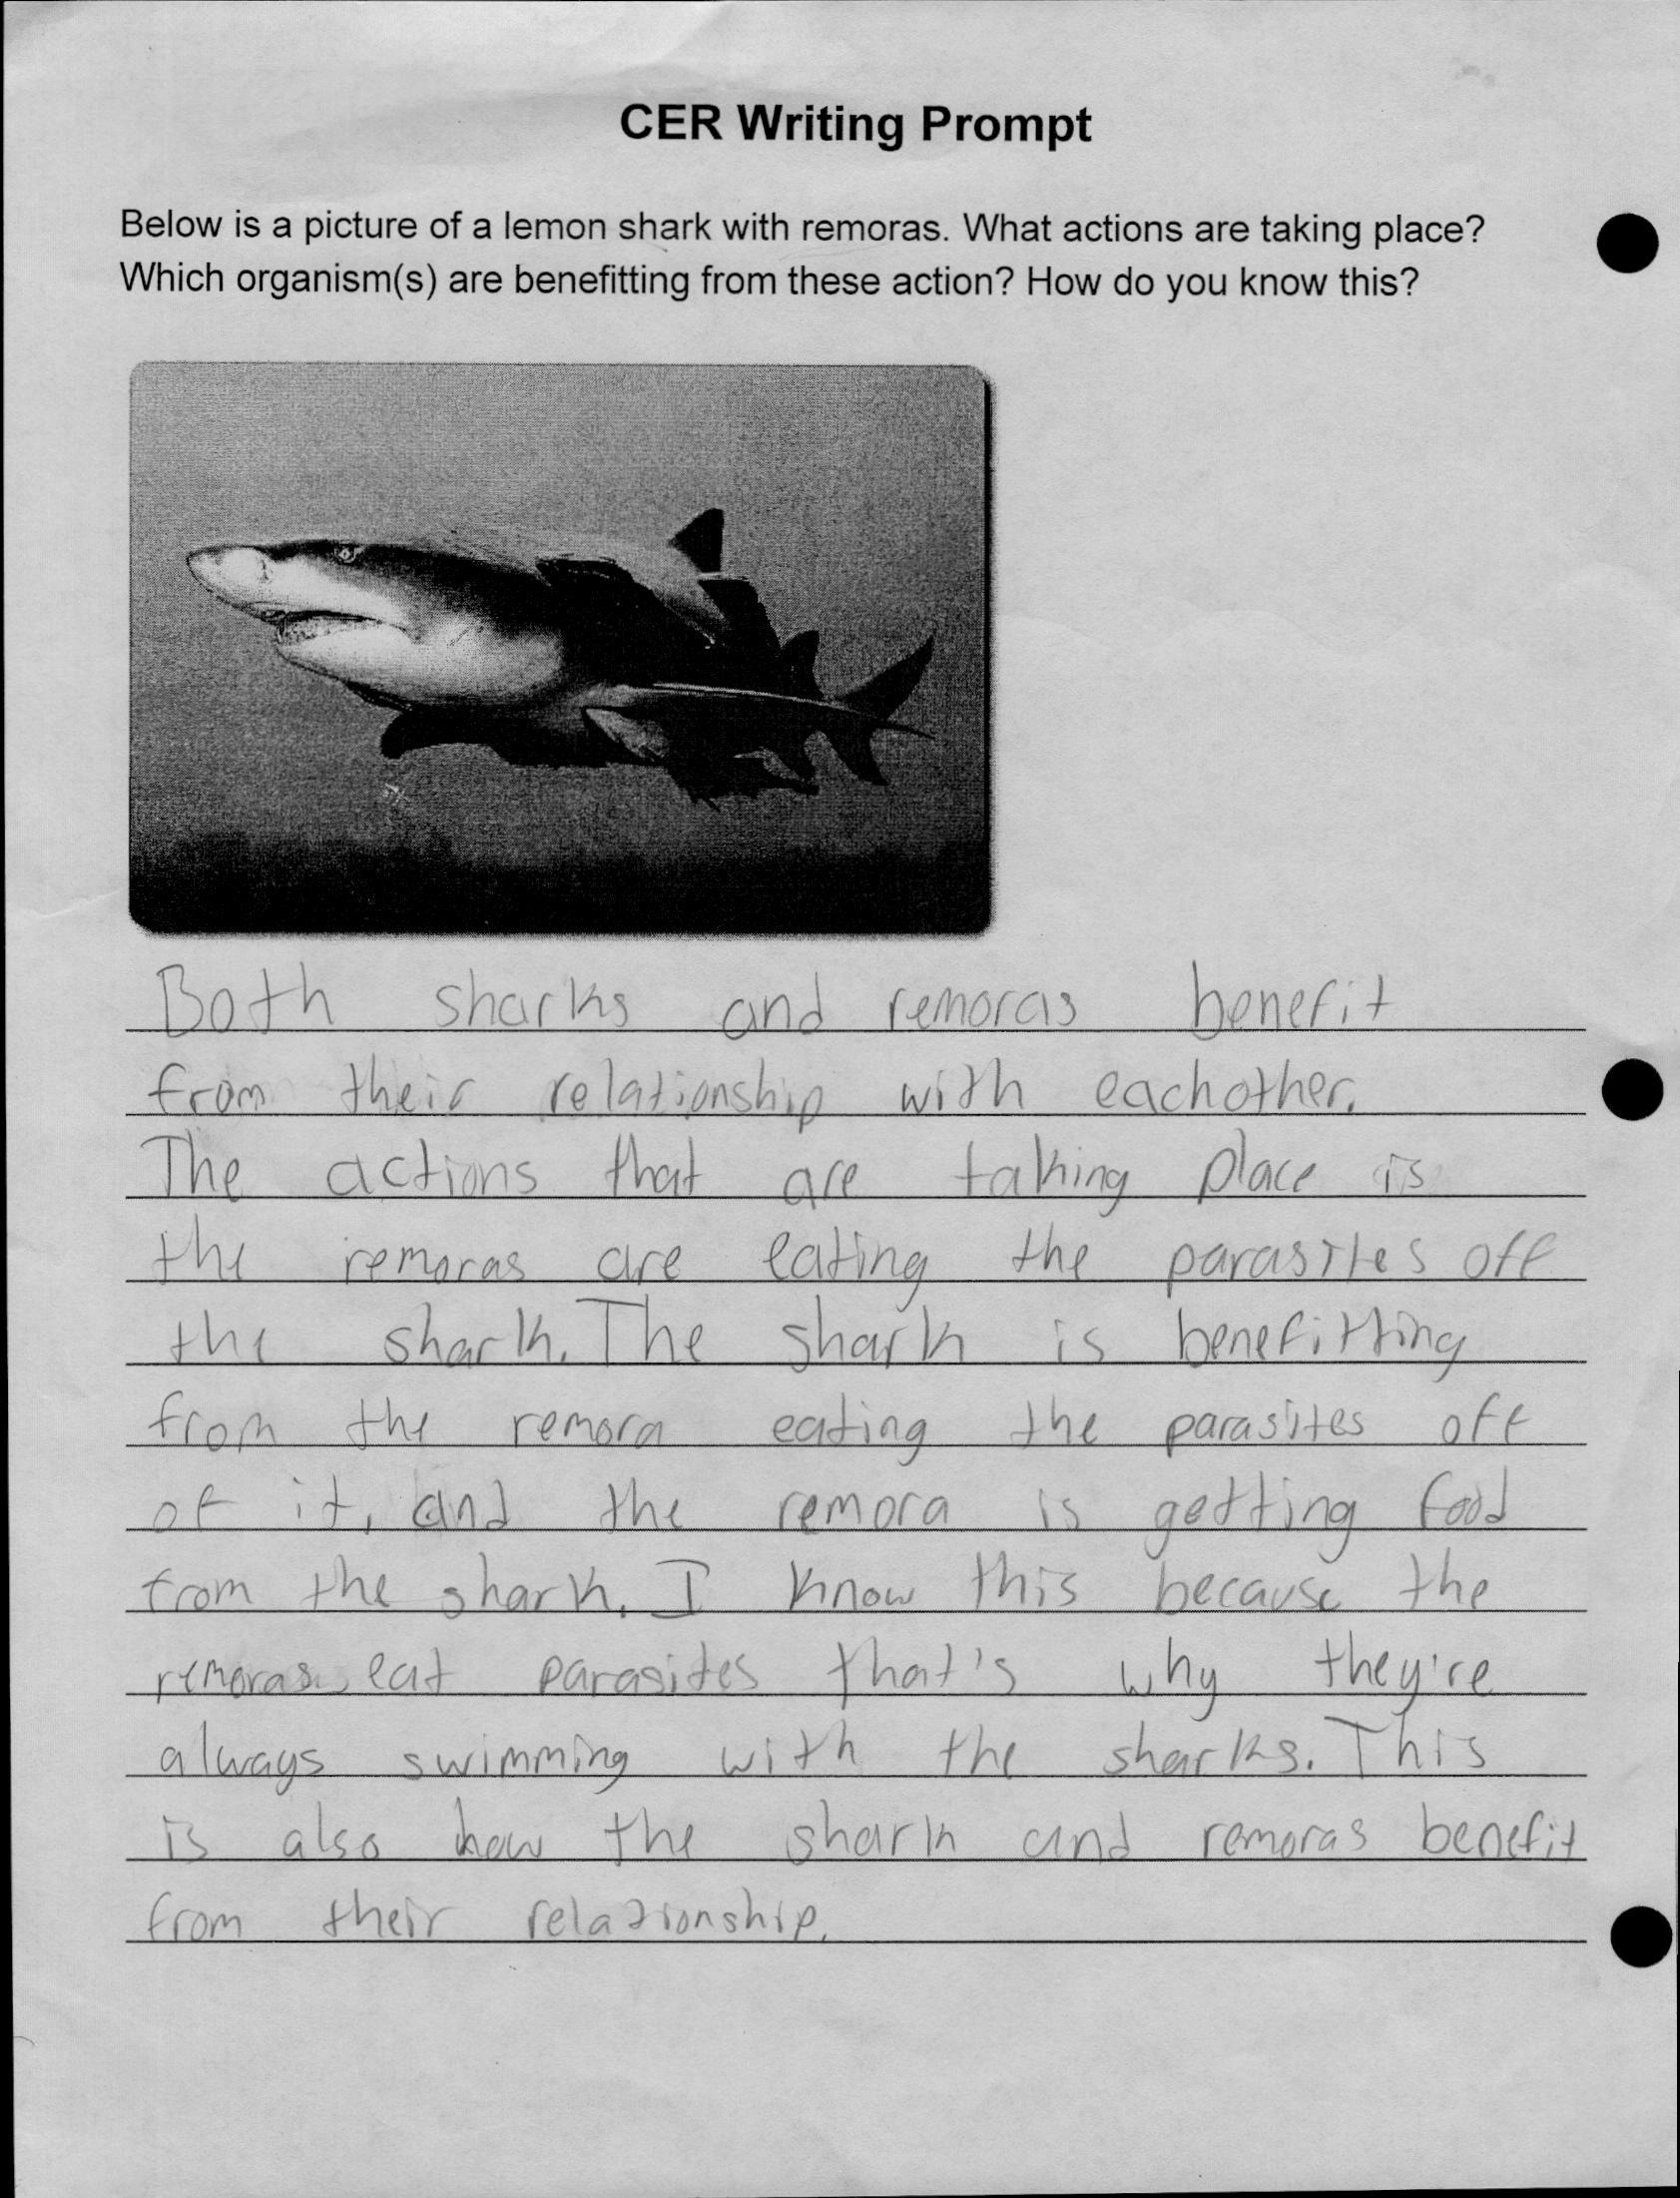 CER Writing Prompt
Below is a picture of a lemon shark with remoras. What actions are taking place?
Which organism(s) are benefitting from these action? How do you know this?
Both sharks and remoras benefit
from their relationship with eachother.
The actions that are taking place is
the remoras are eating the parasites off
the shark. The shark is benefitting
from the remora eating the parasites off
of it, and the remora is getting food
from the shark. I know this because the
remoras eat parasites that's why they're
always swimming with the sharks. This
is also how the shark and remoras benefit
from their relationship.